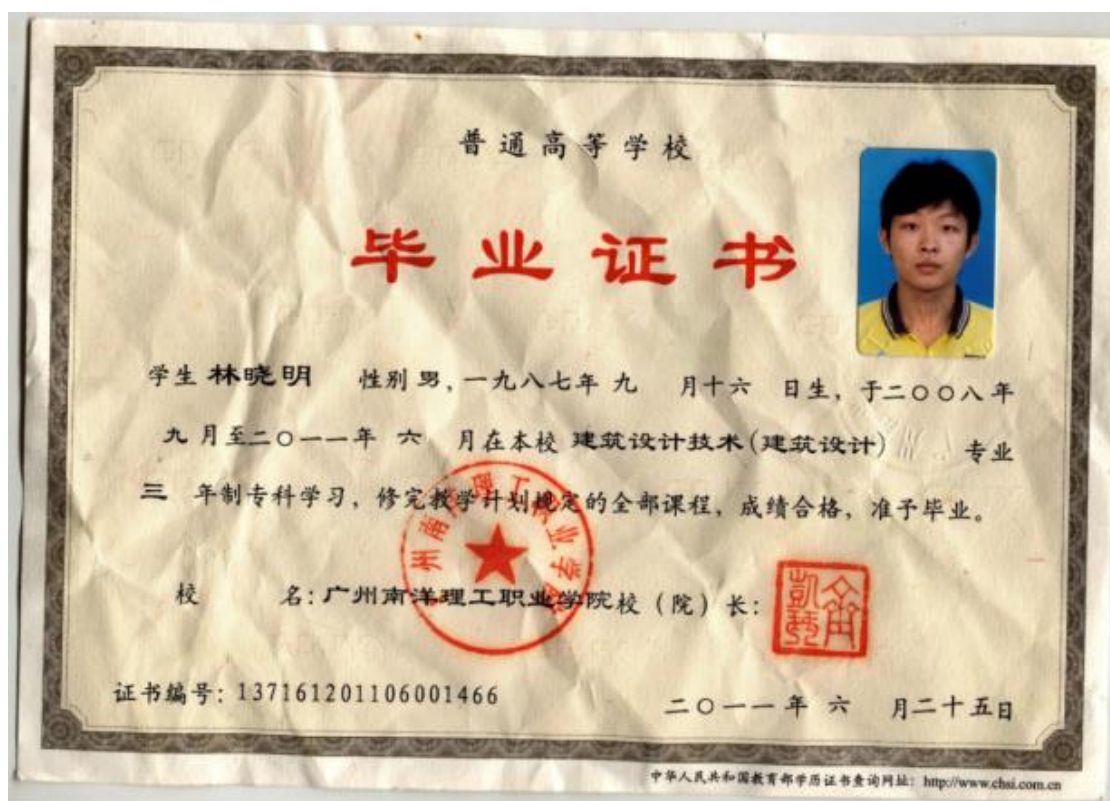 普通高等学校
毕业证书
学生 林晓明 性别 男，一九八七年 九 月十六 日生，于二〇〇八年
九 月至二〇一一年 六 月在本校 建筑设计技术(建筑设计) 专业
三 年制专科学习，修完教学计划规定的全部课程，成绩合格，准予毕业。
校 名：广州南洋理工职业学院 校（院）长：
证书编号：137161201106001466
二〇一一年 六 月二十五日
中华人民共和国教育部学历证书查询网址：http://www.chsi.com.cn